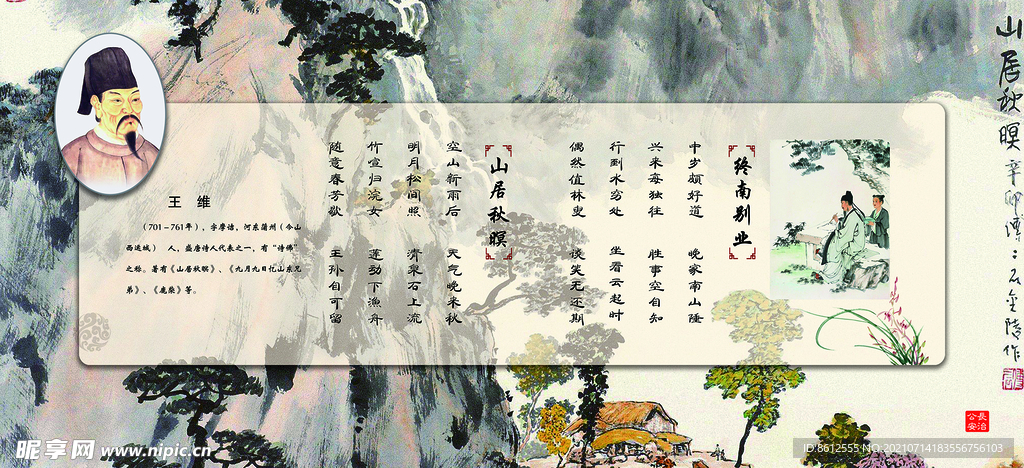 山居秋暝
终南别业
中岁颇好道 晚家南山陲
兴来每独往 胜事空自知
行到水穷处 坐看云起时
偶然值林叟 谈笑无还期
山居秋暝
空山新雨后 天气晚来秋
明月松间照 清泉石上流
竹喧归浣女 莲动下渔舟
随意春芳歇 王孙自可留
王 维
（701-761年），字摩诘，河东蒲州（今山
西运城） 人，盛唐诗人代表之一，有“诗佛”
之称。著有《山居秋暝》、《九月九日忆山东兄
弟》、《鹿柴》等。
長治
公安
昵享网 www.nipic.cn
ID:8612555 NO:20210714183556756103